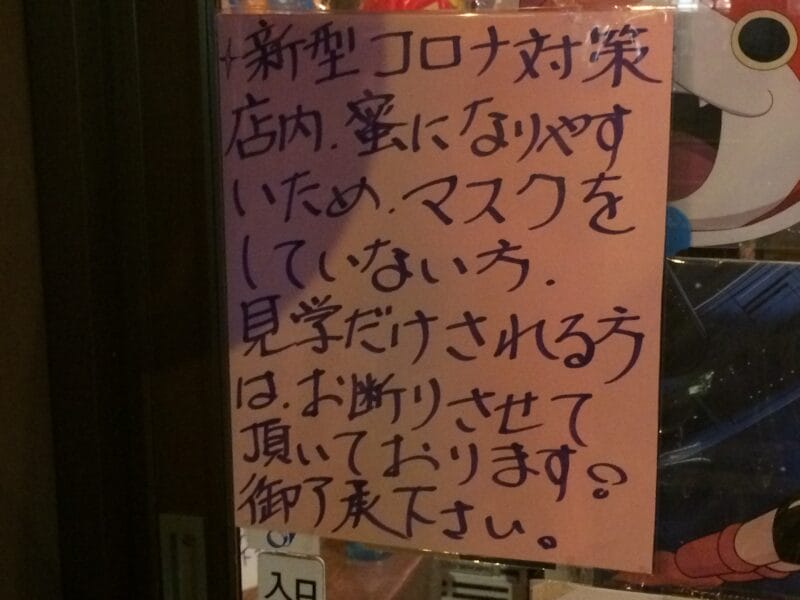 新型コロナ対策
店内.蜜になりやす
いため.マスクを
していない方.
見学だけされる方
は.お断りさせて
頂いております。
御了承下さい。
入口